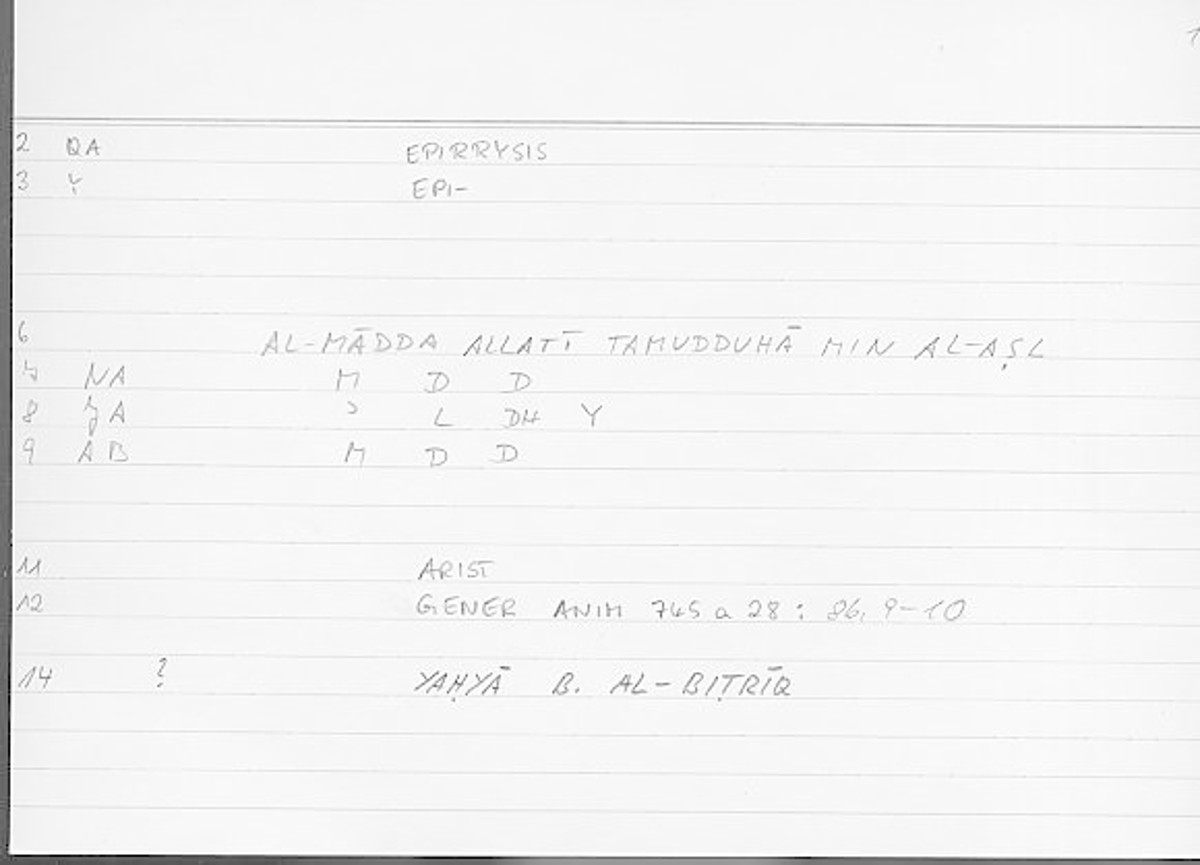 1
2 QA EPIRRYSIS
3 Y EPI-
6 AL-MĀDDA ALLATĪ TAMUDDUHĀ MIN AL-AṢL
7 NA M D D
8 ZA ʾ L DH Y
9 AB M D D
11 ARIST
12 GENER ANIM 745 a 28 : 86, 9-10
14 ? YAḤYĀ B. AL-BIṬRĪQ